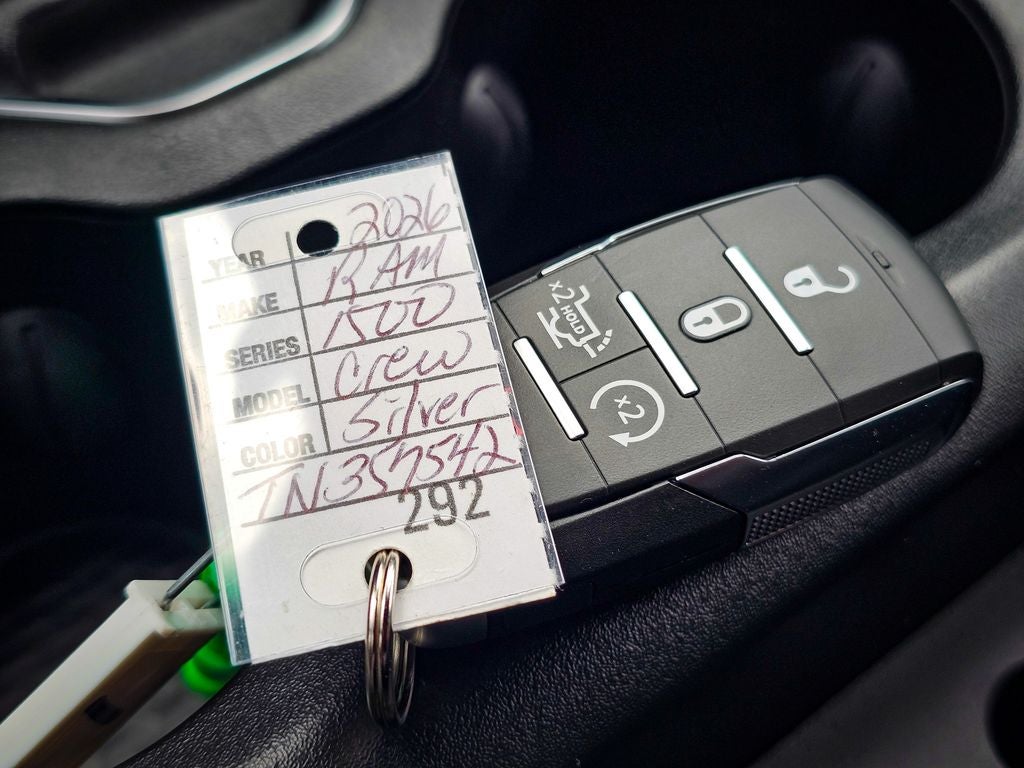 YEAR 2026
MAKE RAM
SERIES 1500
MODEL Crew
COLOR Silver
TN357542
292
x2 HOLD
x2